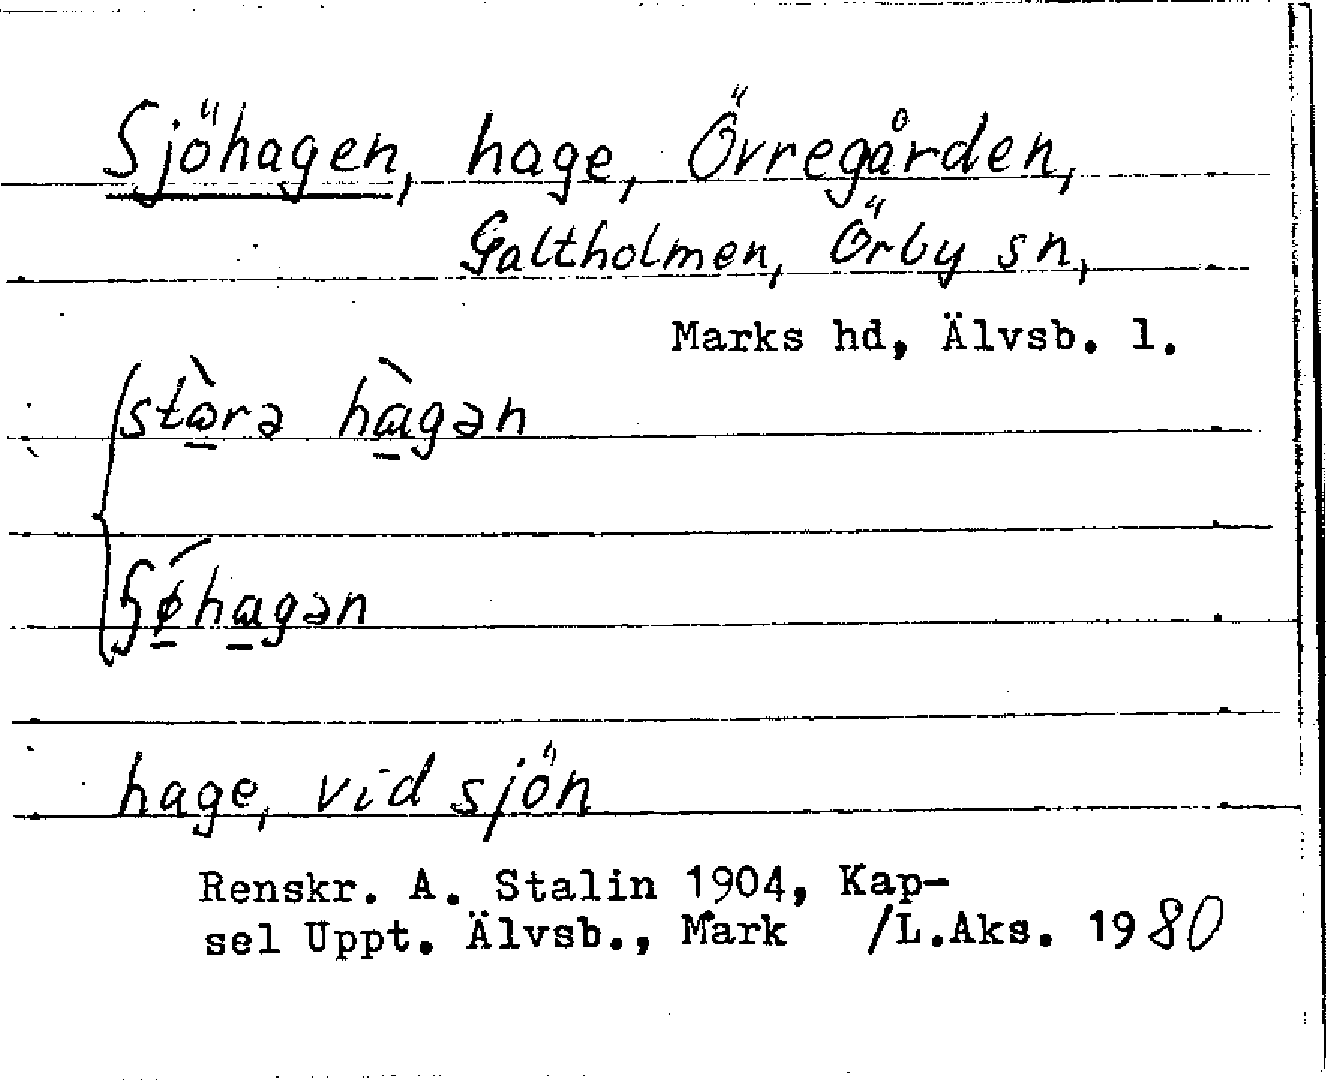 Sjöhagen, hage, Övregården,
Galtholmen, Örby sn,
Marks hd, Älvsb. l.
stòra hàgan
ɧǿhagan
hage, vid sjön
Renskr. A. Stalin 1904, Kap-
sel Uppt. Älvsb., Mark /L.Aks. 1980